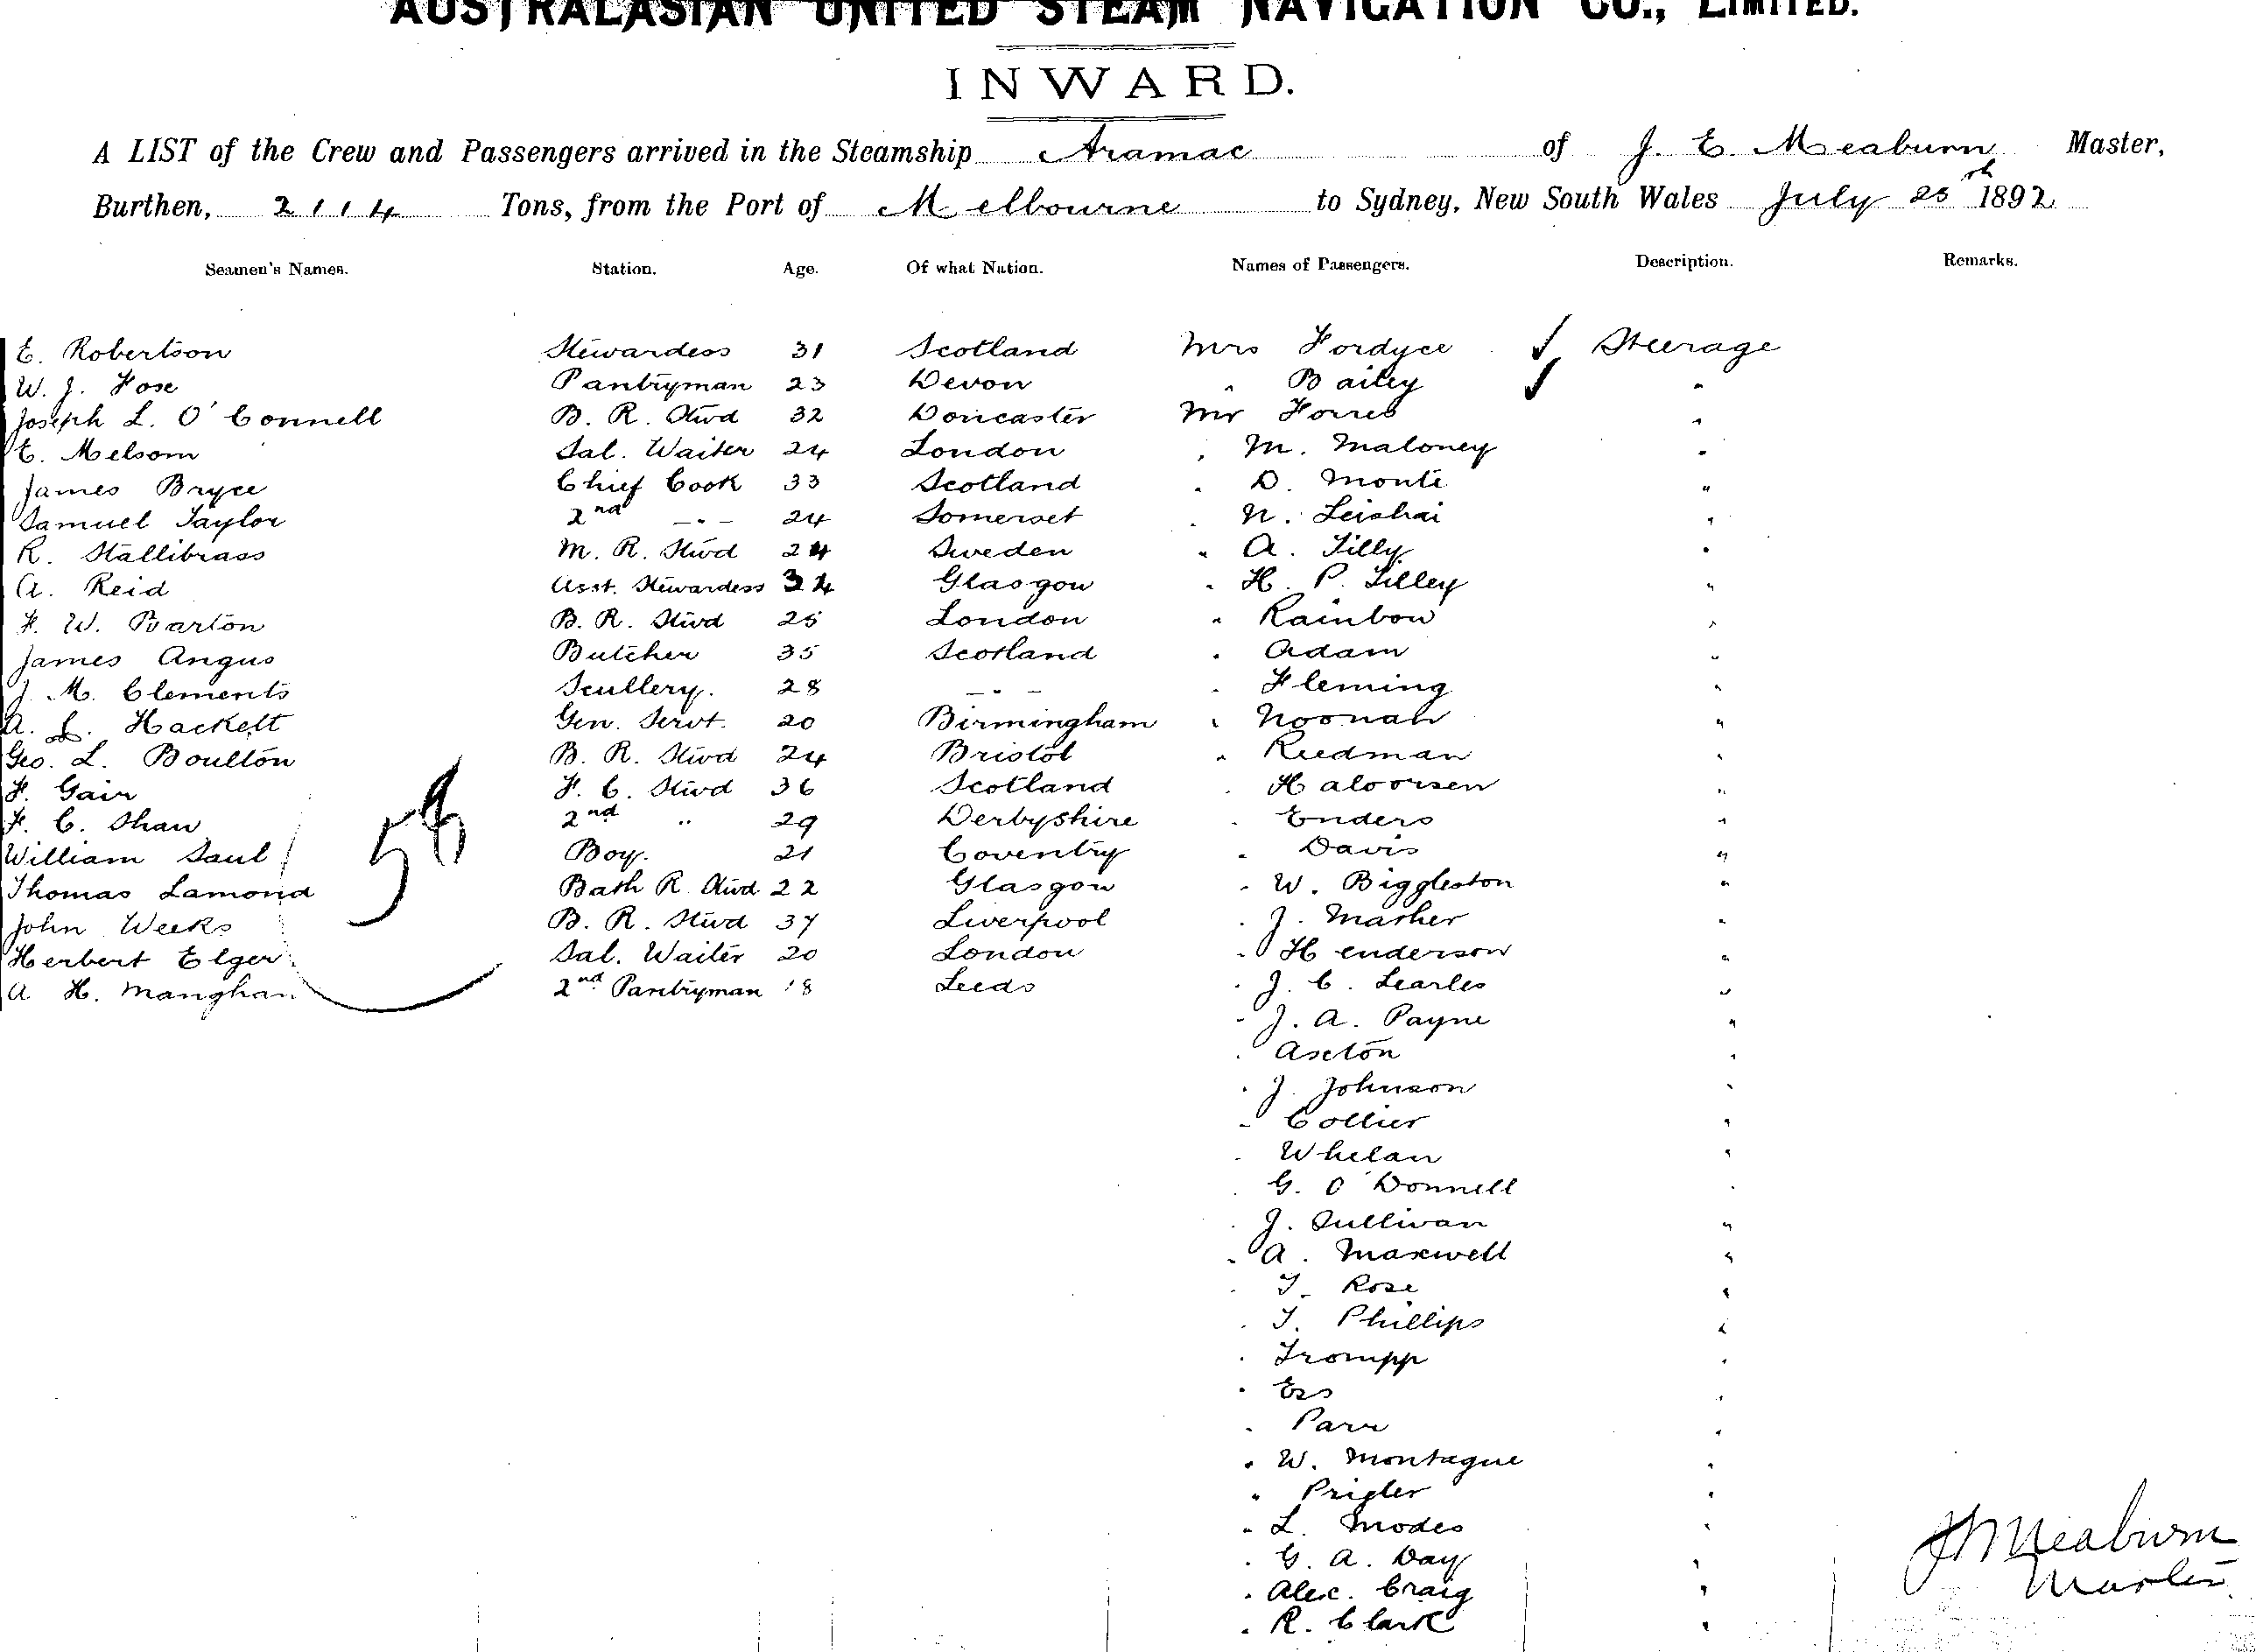 AUSTRALASIAN UNITED STEAM NAVIGATION CO., LIMITED.
INWARD.
A LIST of the Crew and Passengers arrived in the Steamship Aramac of J. E. Meaburn Master,
Burthen, 2114 Tons, from the Port of Melbourne to Sydney, New South Wales July 25th 1892
Seamen's Names. Station. Age. Of what Nation. Names of Passengers. Description. Remarks.
E. Robertson Stewardess 31 Scotland Mrs Fordyce ✓ Steerage
W. J. Fose Pantryman 23 Devon " Bailey ✓ "
Joseph L. O'Connell B. R. Stwd 32 Doncaster Mr Forres "
E. Melsom Sal. Waiter 24 London " M. Maloney "
James Bryce Chief Cook 33 Scotland " D. Monte "
Samuel Taylor 2nd -"- 24 Somerset " N. Leishai "
R. Stallibrass M. R. Stwd 24 Sweden " A. Tilly "
A. Reid Asst. Stewardess 34 Glasgow " H. P. Lilley "
F. W. Barton B. R. Stwd 25 London " Rainbow "
James Angus Butcher 35 Scotland " Adam "
J. M. Clements Scullery. 28 -"- " Fleming "
A. L. Hackett Gen. Servt. 20 Birmingham " Noonan "
Geo. L. Boulton B. R. Stwd 24 Bristol " Reedman "
F. Gair F. C. Stwd 36 Scotland " Haloorsen "
F. C. Shaw 2nd " 29 Derbyshire " Enders "
William Saul Boy. 21 Coventry " Davis "
Thomas Lamond Bath R Stwd 22 Glasgow " W. Biggleston "
John Weeks B. R. Stwd 37 Liverpool " J. Marher "
Herbert Elger Sal. Waiter 20 London " Henderson "
A. H. Manghan 2nd Pantryman 18 Leeds " J. C. Searles "
" J. A. Payne "
" Aseton "
" J. Johnson "
" Collier "
" Whelan "
" G. O'Donnell "
" J. Sullivan "
" A. Maxwell "
" T. Rose "
" T. Phillips "
" Trompp "
" Parr "
" W. Montague "
" Prigler "
" L. Modes "
" G. A. Day "
" Alec. Craig "
" R. Clark "
J Meaburn
Master